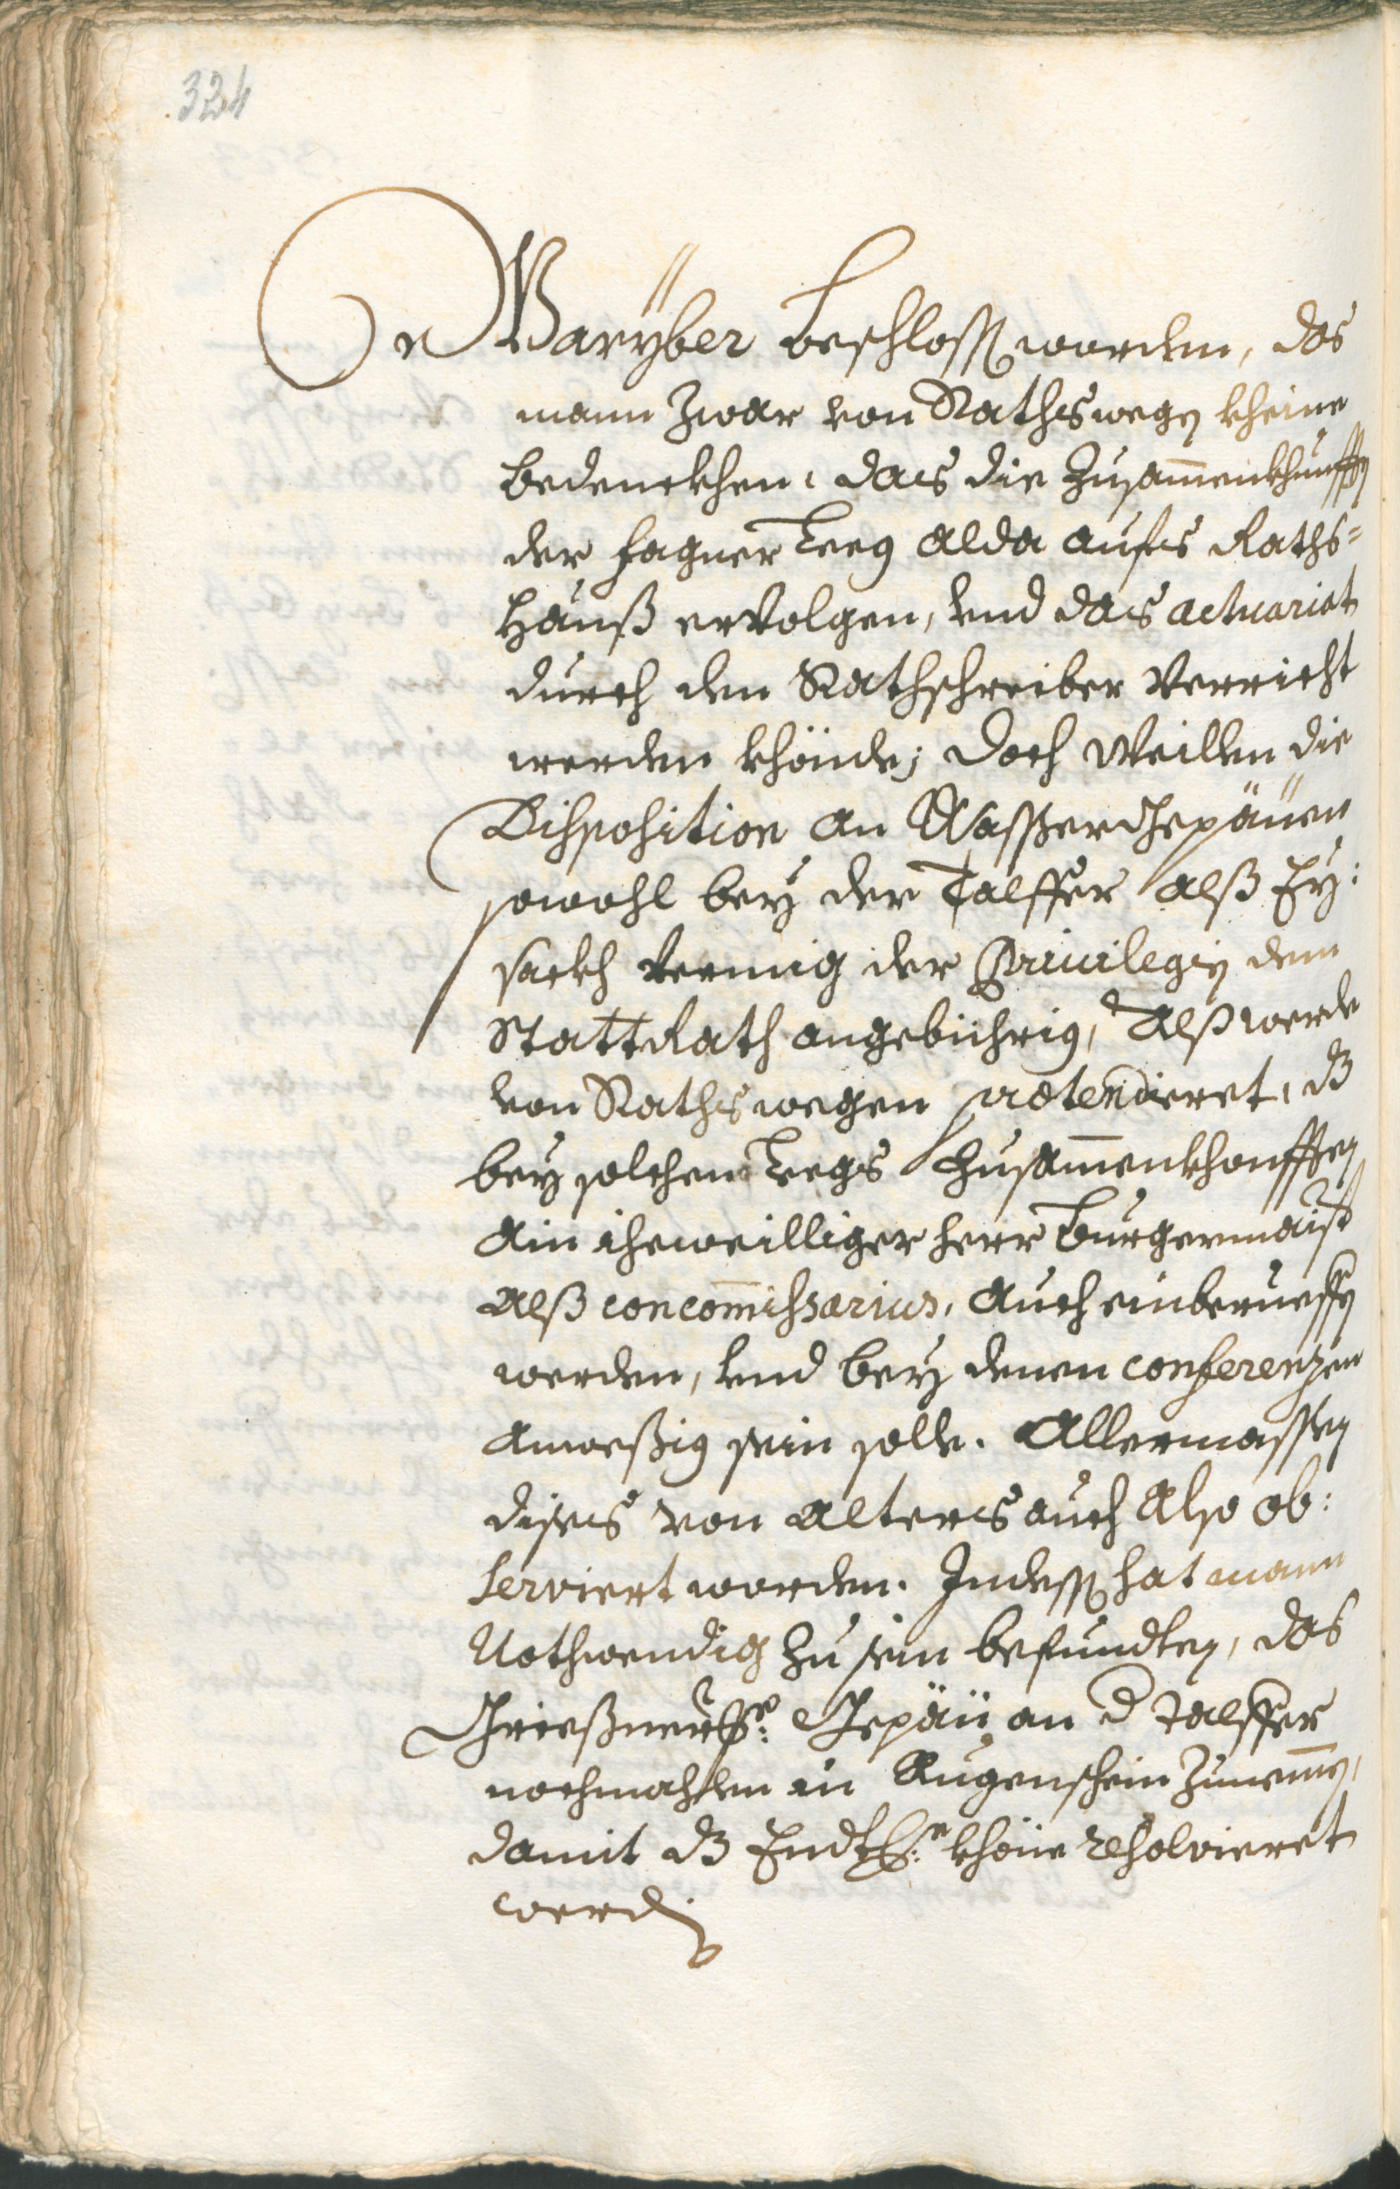 324
Waryber beschlossen worden, das
mann zwar von Raths wegen kheine
bedenckhen, das die Zusamenkhunfften
der Hagner Leeg alda aufs Raths=
Hauß ervolgen, vnd das actuariat
durch den Rathschreiber verricht
werden khönde; doch weillen die
Disposition an Wasserthepäuen
sowohl bey der Talffer alß Ey:
sackh vermig der Privilegien dem
StattRath angebührig, Alß werde
von Raths wegen praetendieret, dz
bey solchen Leegs Zusamenkhonfften
Ain iheweilliger herr Burgermaister
Alß concommissarius, Auch einberueffen
werden, vnd bey denen conferenzen
Anweßig sein solle. Allermassen
dises von Alters auch Also ob:
serviert worden. Indessen hat mann
Nothwendig zu sein befundten, das
Grießnerische Gepäu an der Talffer
nochmahlen in Augenschein zunemmen,
damit dz Endtliche khöne resolvieret
werden